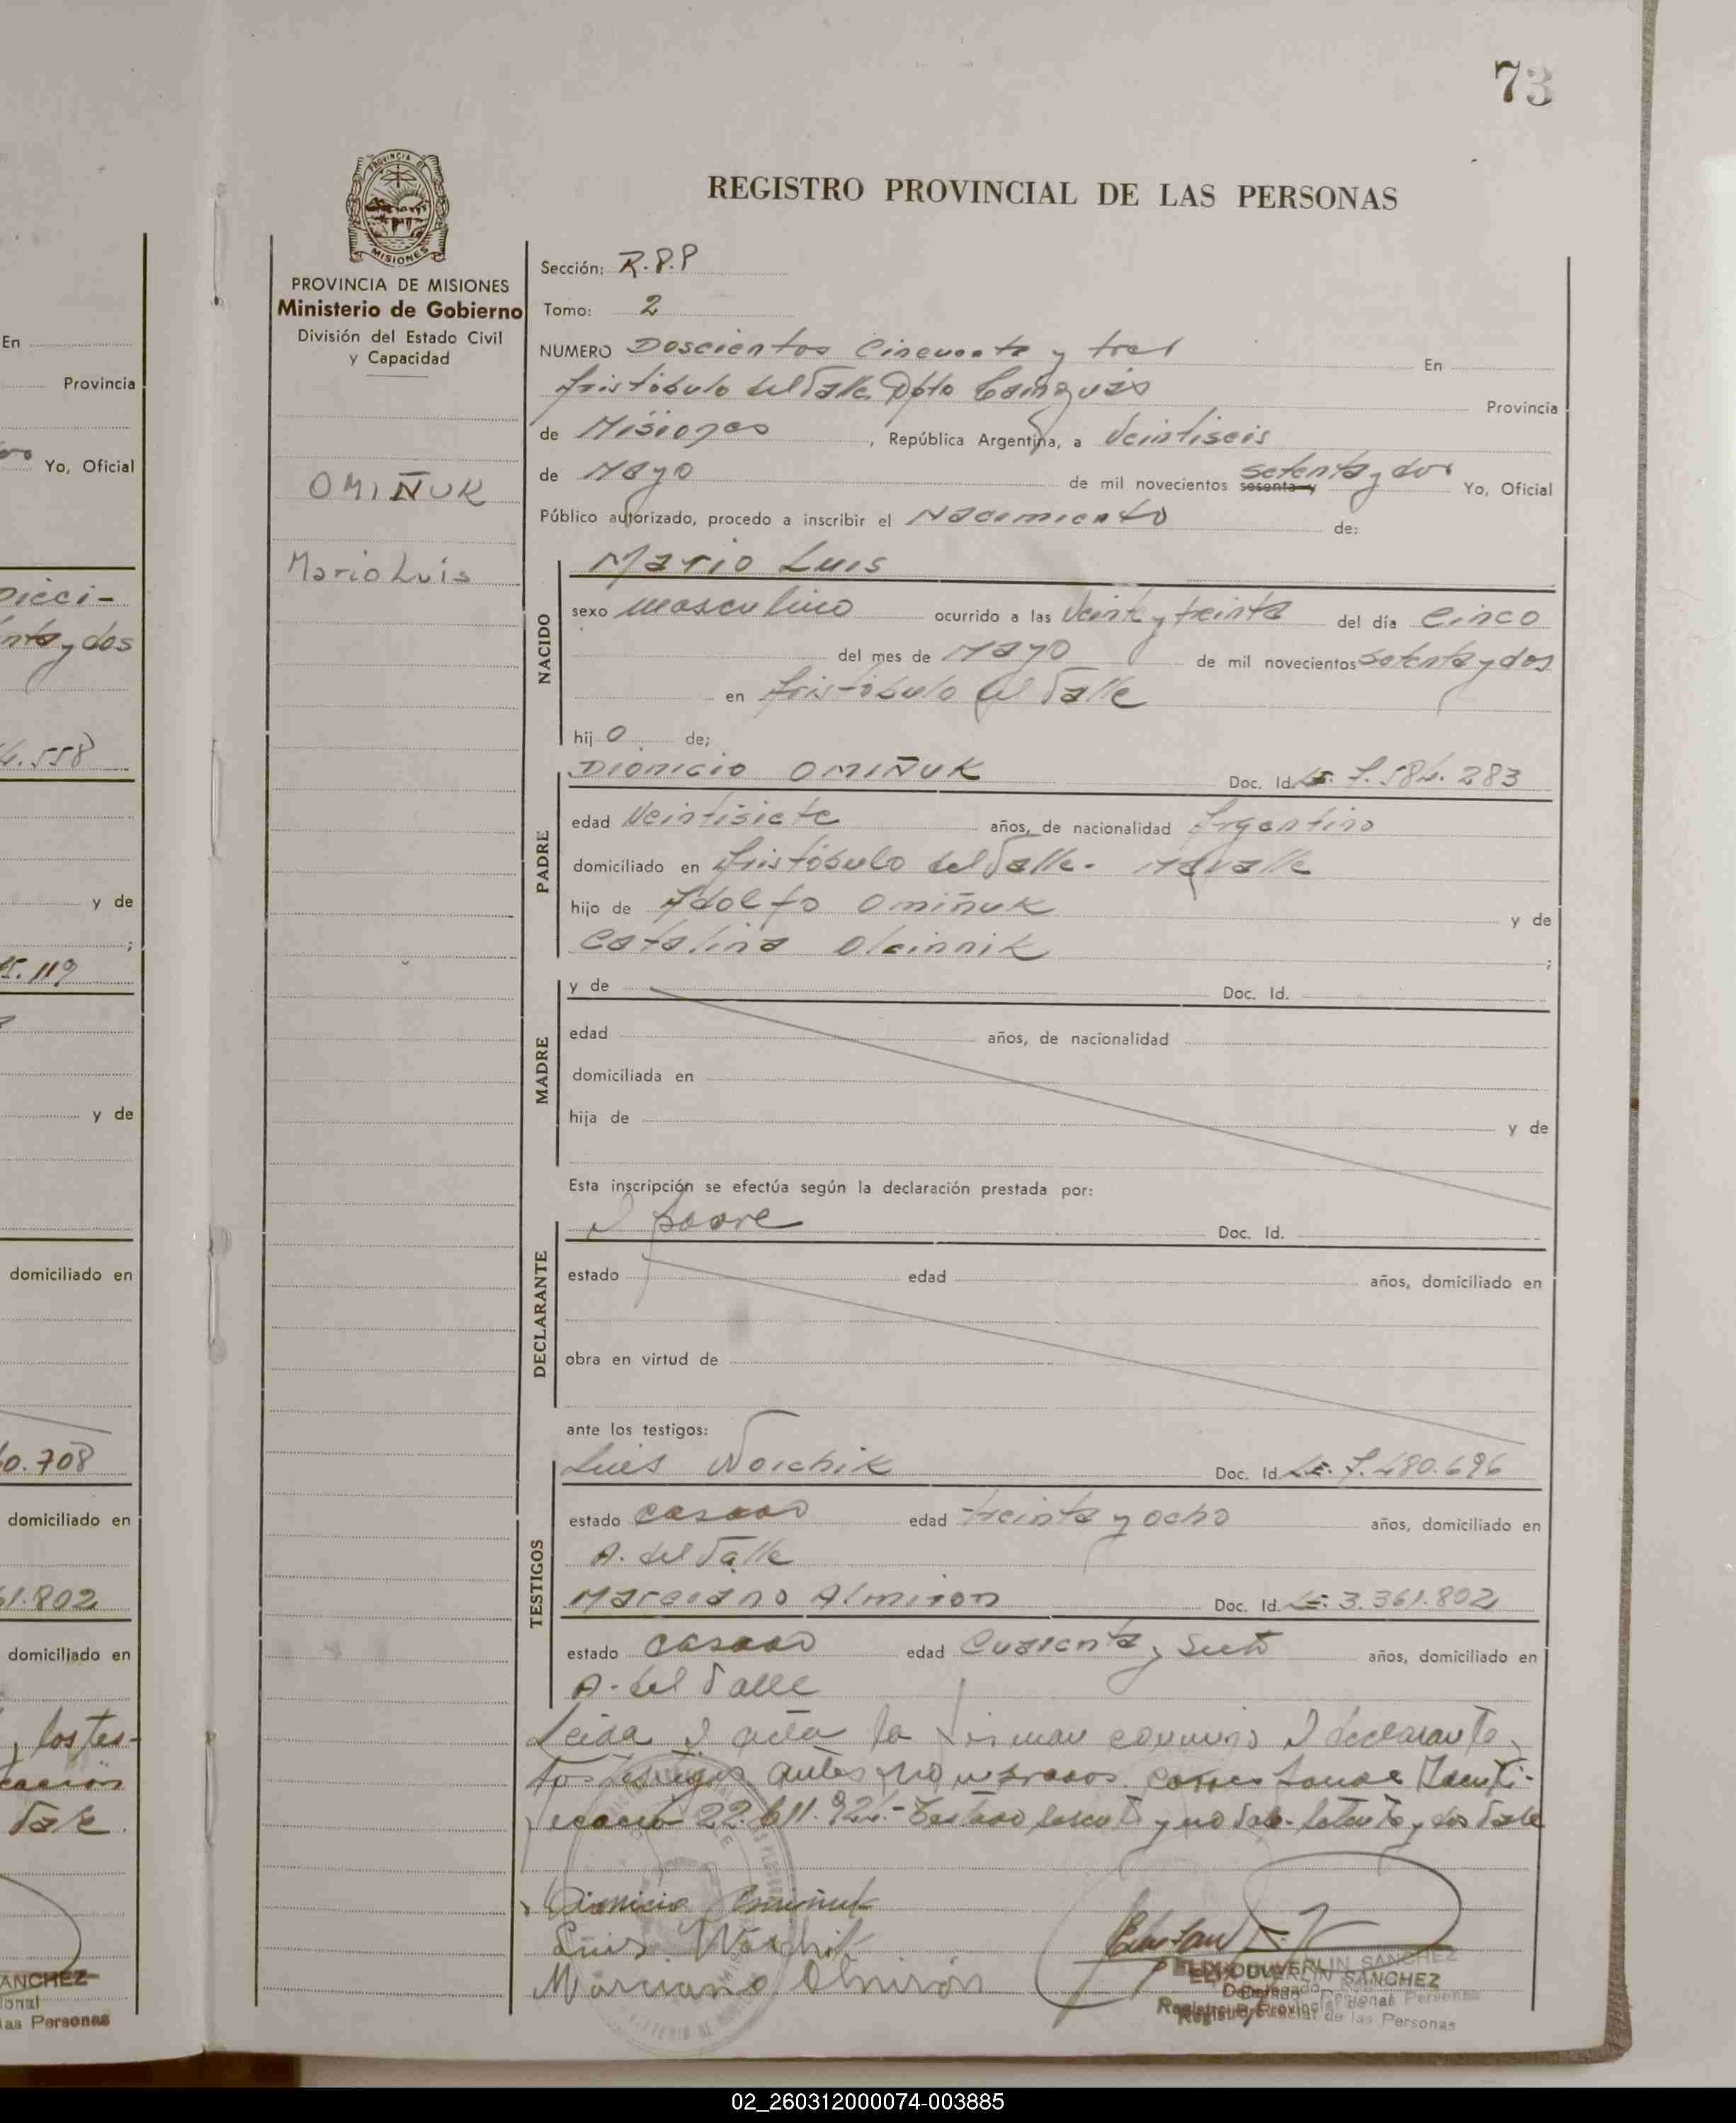 73
REGISTRO PROVINCIAL DE LAS PERSONAS
PROVINCIA DE MISIONES
Ministerio de Gobierno
División del Estado Civil
y Capacidad
OMIÑUK
Mario Luis
Sección: R.P.P
Tomo: 2
NUMERO Doscientos Cincuenta y tres En
Aristóbulo del Valle Dpto Cainguás Provincia
de Misiones, República Argentina, a Veintiseis
de Mayo de mil novecientos sesenta y setenta y dos Yo, Oficial
Público autorizado, procedo a inscribir el Nacimiento de:
NACIDO
Mario Luis
sexo masculino ocurrido a las Veinte y treinta del día Cinco
del mes de Mayo de mil novecientos setenta y dos
en Aristóbulo del Valle
hij o de;
PADRE
Dionicio OMIÑUK Doc. Id. LE. 7.584.283
edad Veintisiete años, de nacionalidad Argentino
domiciliado en Aristóbulo del Valle.
hijo de Adolfo Omiñuk y de
Catalina Oleinnik ;
MADRE
y de Doc. Id.
edad años, de nacionalidad
domiciliada en
hija de y de
Esta inscripción se efectúa según la declaración prestada por:
DECLARANTE
el padre Doc. Id.
estado edad años, domiciliado en
obra en virtud de
ante los testigos:
TESTIGOS
Luis Woichik Doc. Id. LE. 7.480.696
estado casado edad treinta y ocho años, domiciliado en
A. del Valle
Marciano Almiron Doc. Id. LE: 3.361.802
estado casado edad Cuarenta y siete años, domiciliado en
A. del Valle
Leida el acta la firman conmigo el declarante,
los testigos antes nombrados. Corresponde Identi-
ficación 22.611.924.- Testado sesenta y no vale. setenta y dos Vale
Dionicio Omiñuk
Luis Woichik
Marciano Almirón
SANCHEZ
Registro Provincial de las Personas
En
Provincia
Yo, Oficial
Dieci-
y dos
4.558
y de
;
5.119
y de
domiciliado en
0.708
domiciliado en
61.802
domiciliado en
, los tes-
Vale.
ANCHEZ
onal
las Personas
02_260312000074-003885